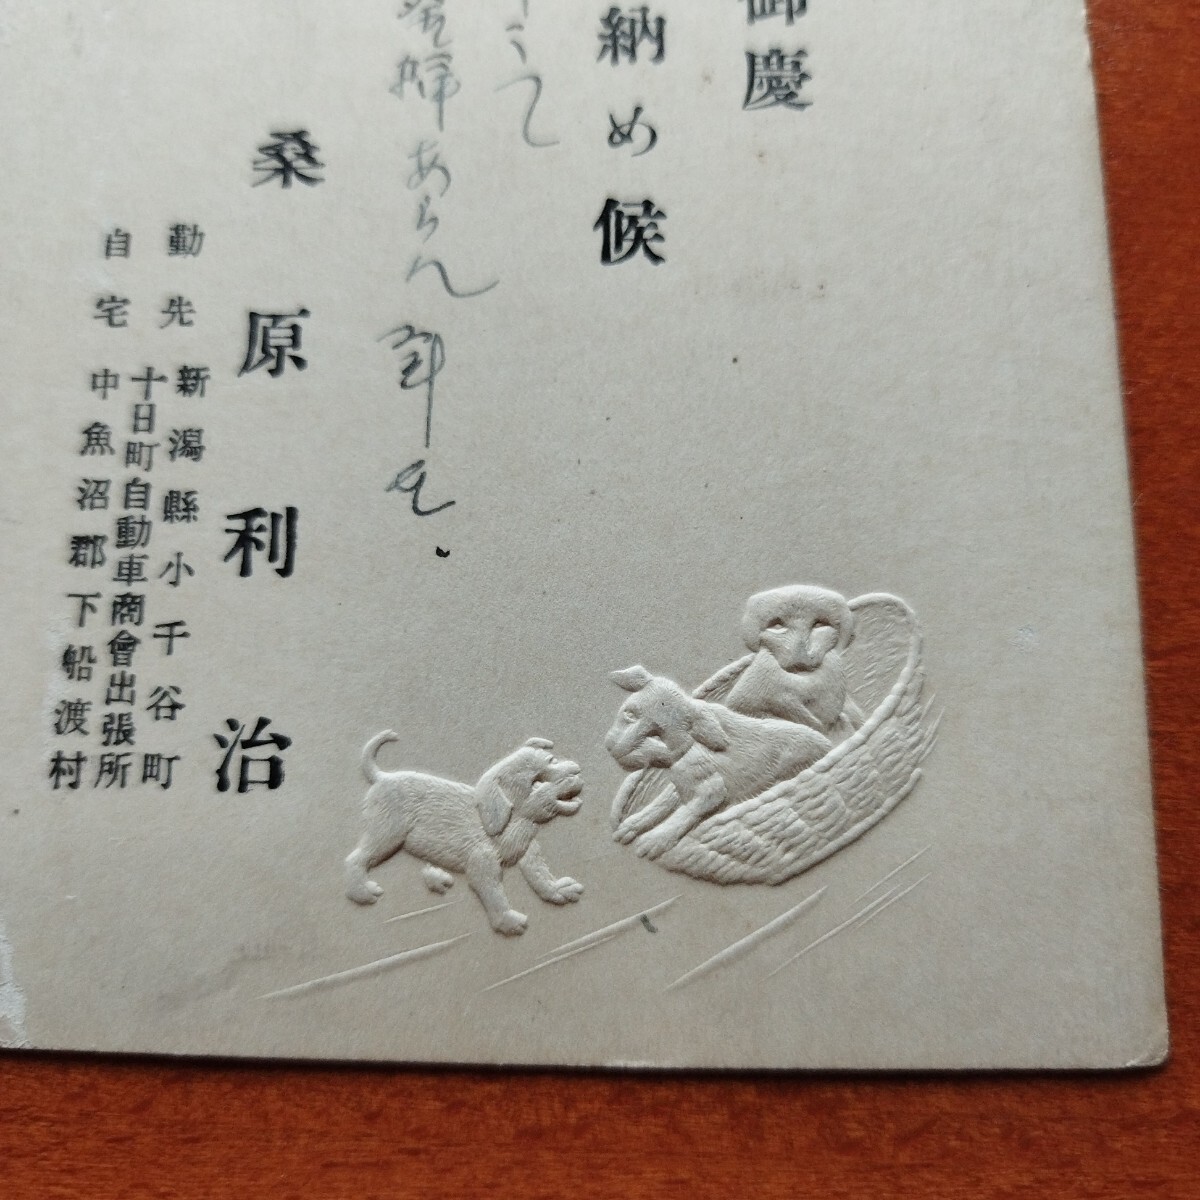 御慶
納め候
あらん
年も
桑原利治
勤先 新潟縣小千谷町
十日町自動車商會出張所
自宅 中魚沼郡下船渡村